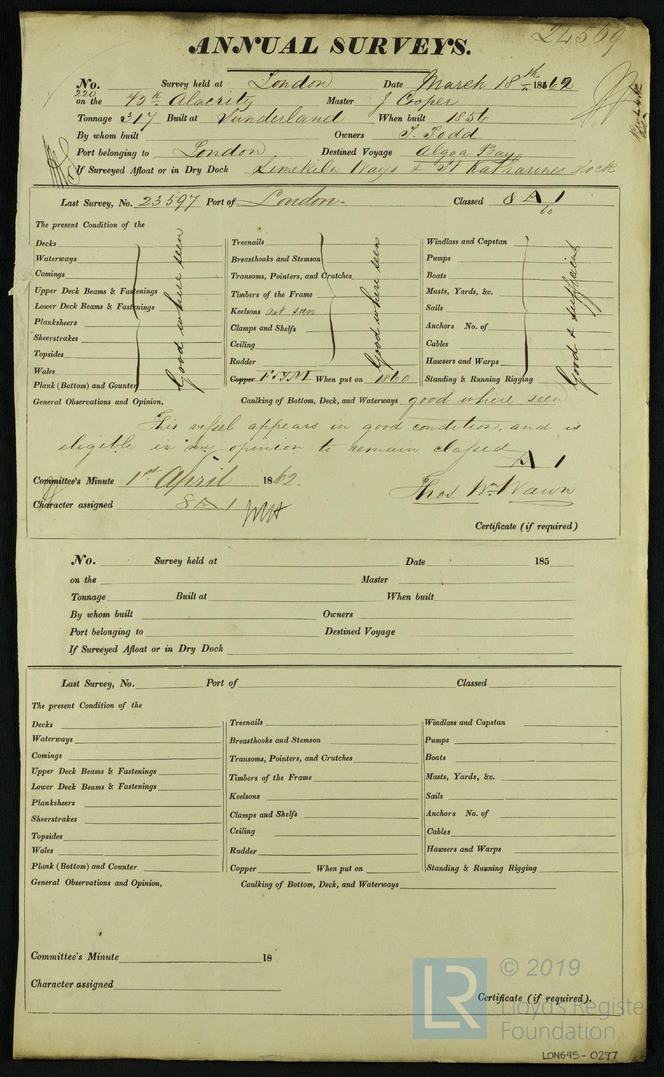 24569
ANNUAL SURVEYS.
No. Survey held at London Date March 18th 1862
220 on the Alacrity Master J Cooper
Tonnage 317 Built at Sunderland When built 1856
By whom built Owners T. Todd
Port belonging to London Destined Voyage Algoa Bay
If Surveyed Afloat or in Dry Dock Limekiln Ways & St Katharines Dock
Last Survey, No. 23597 Port of London. Classed 8 A 1
60
The present Condition of the
Decks
Waterways
Comings
Upper Deck Beams & Fastenings
Lower Deck Beams & Fastenings
Planksheers
Sheerstrakes
Topsides
Wales
Plank (Bottom) and Counter
Good where seen
Treenails
Breasthooks and Stemson
Transoms, Pointers, and Crutches
Timbers of the Frame
Keelsons not seen
Clamps and Shelfs
Ceiling
Rudder
Copper F&YM When put on 1860
Good where seen
Windlass and Capstan
Pumps
Boats
Masts, Yards, &c.
Sails
Anchors No. of
Cables
Hawsers and Warps
Standing & Running Rigging
Good & sufficient
General Observations and Opinion, Caulking of Bottom, Deck, and Waterways good where seen
This vessel appears in good condition, and is
eligible in my opinion to remain classed
A 1
Committee's Minute 1st April 1862.
Thos. Wm Wawn
Character assigned 8 A 1
Certificate (if required)
No. Survey held at Date 185
on the Master
Tonnage Built at When built
By whom built Owners
Port belonging to Destined Voyage
If Surveyed Afloat or in Dry Dock
Last Survey, No. Port of Classed
The present Condition of the
Decks
Waterways
Comings
Upper Deck Beams & Fastenings
Lower Deck Beams & Fastenings
Planksheers
Sheerstrakes
Topsides
Wales
Plank (Bottom) and Counter
Treenails
Breasthooks and Stemson
Transoms, Pointers, and Crutches
Timbers of the Frame
Keelsons
Clamps and Shelfs
Ceiling
Rudder
Copper When put on
Windlass and Capstan
Pumps
Boats
Masts, Yards, &c.
Sails
Anchors No. of
Cables
Hawsers and Warps
Standing & Running Rigging
General Observations and Opinion, Caulking of Bottom, Deck, and Waterways
Committee's Minute 18
Character assigned
Certificate (if required).
LR
© 2019
Lloyd's Register
Foundation
LON645-0297